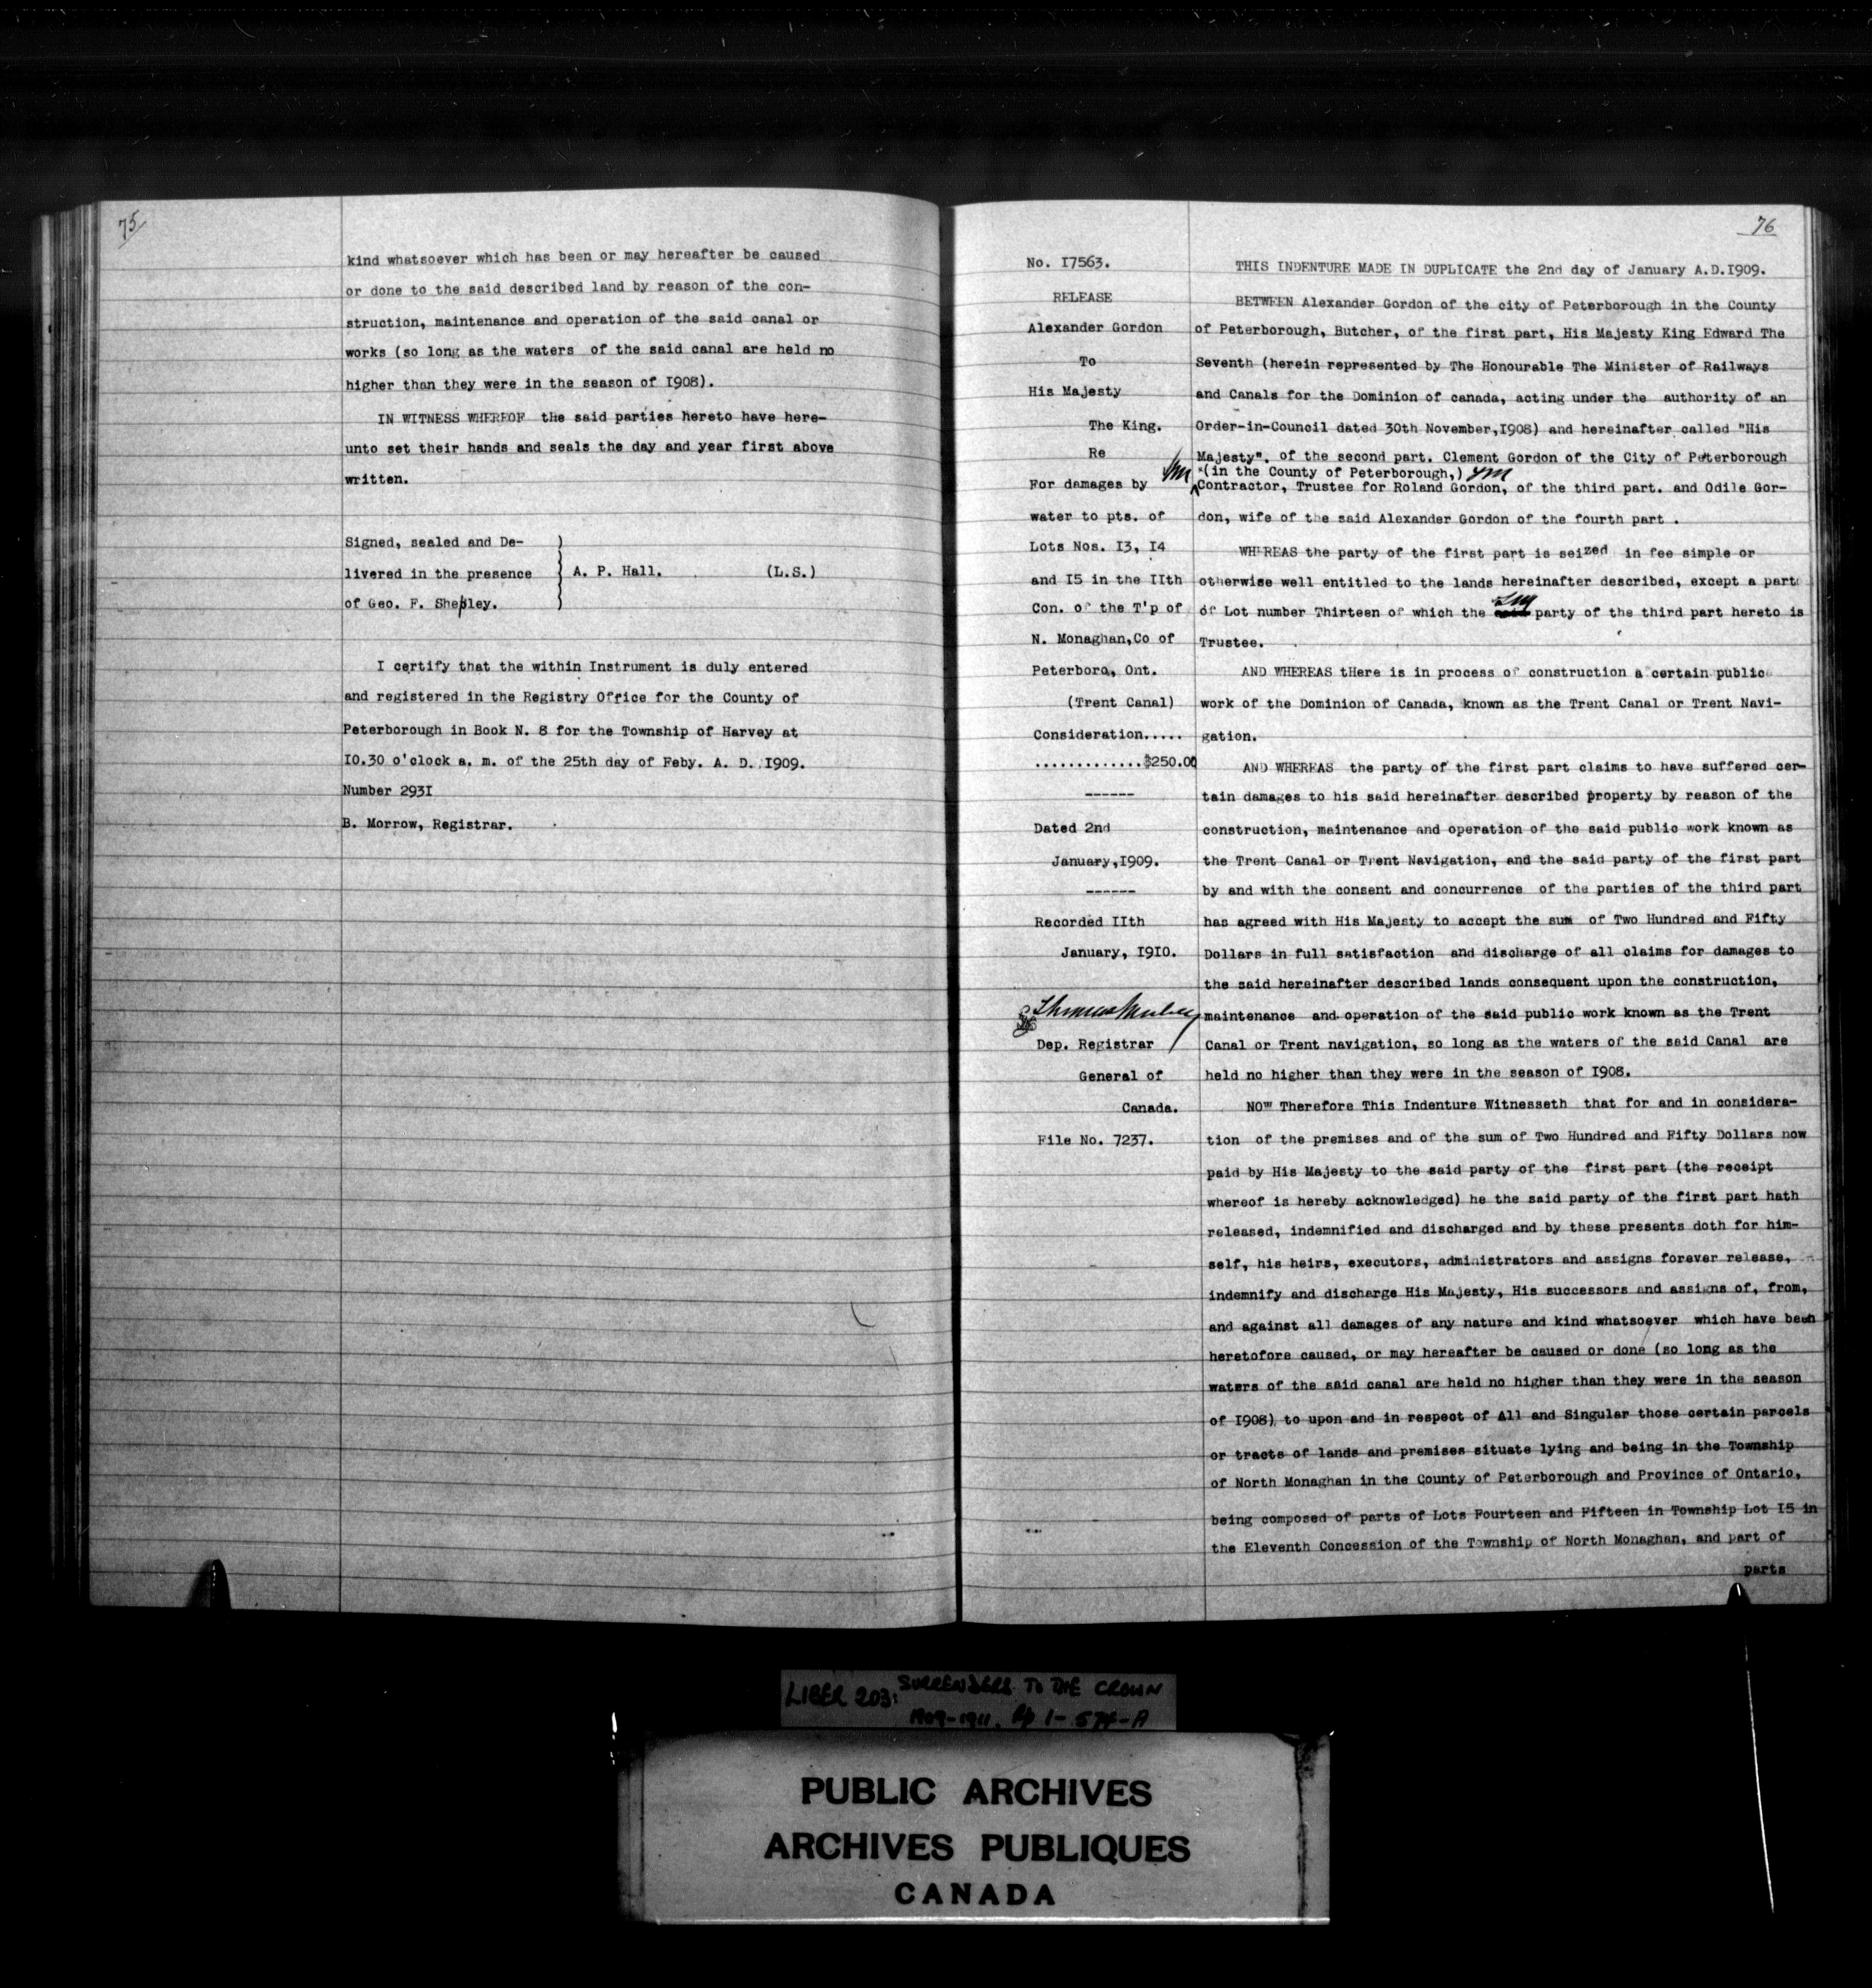 75
kind whatsoever which has been or may hereafter be caused
or done to the said described land by reason of the con-
struction, maintenance and operation of the said canal or
works (so long as the waters of the said canal are held no
higher than they were in the season of I908).
IN WITNESS WHEREOF the said parties hereto have here-
unto set their hands and seals the day and year first above
written.
Signed, sealed and De-
livered in the presence } A. P. Hall. (L.S.)
of Geo. F. Shepley.
I certify that the within Instrument is duly entered
and registered in the Registry Office for the County of
Peterborough in Book N. 8 for the Township of Harvey at
I0.30 o'clock a. m. of the 25th day of Feby. A. D. I909.
Number 293I
B. Morrow, Registrar.
76
No. I7563.
RELEASE
Alexander Gordon
To
His Majesty
The King.
Re
For damages by
water to pts. of
Lots Nos. I3, I4
and I5 in the IIth
Con. of the T'p of
N. Monaghan,Co of
Peterboro, Ont.
(Trent Canal)
Consideration.....
.............$250.00
------
Dated 2nd
January,I909.
------
Recorded IIth
January, I9I0.
Dep. Registrar
General of
Canada.
File No. 7237.
THIS INDENTURE MADE IN DUPLICATE the 2nd day of January A.D.I909.
BETWEEN Alexander Gordon of the city of Peterborough in the County
of Peterborough, Butcher, of the first part, His Majesty King Edward The
Seventh (herein represented by The Honourable The Minister of Railways
and Canals for the Dominion of canada, acting under the authority of an
Order-in-Council dated 30th November,I908) and hereinafter called "His
Majesty". of the second part. Clement Gordon of the City of Peterborough
"(in the County of Peterborough,)
Contractor, Trustee for Roland Gordon, of the third part. and Odile Gor-
don, wife of the said Alexander Gordon of the fourth part .
WHEREAS the party of the first part is seized in fee simple or
otherwise well entitled to the lands hereinafter described, except a part
of Lot number Thirteen of which the party of the third part hereto is
Trustee.
AND WHEREAS tHere is in process of construction a certain public
work of the Dominion of Canada, known as the Trent Canal or Trent Navi-
gation.
AND WHEREAS the party of the first part claims to have suffered cer-
tain damages to his said hereinafter described property by reason of the
construction, maintenance and operation of the said public work known as
the Trent Canal or Trent Navigation, and the said party of the first part
by and with the consent and concurrence of the parties of the third part
has agreed with His Majesty to accept the sum of Two Hundred and Fifty
Dollars in full satisfaction and discharge of all claims for damages to
the said hereinafter described lands consequent upon the construction,
maintenance and operation of the said public work known as the Trent
Canal or Trent navigation, so long as the waters of the said Canal are
held no higher than they were in the season of I908.
NOW Therefore This Indenture Witnesseth that for and in considera-
tion of the premises and of the sum of Two Hundred and Fifty Dollars now
paid by His Majesty to the said party of the first part (the receipt
whereof is hereby acknowledged) he the said party of the first part hath
released, indemnified and discharged and by these presents doth for him-
self, his heirs, executors, administrators and assigns forever release,
indemnify and discharge His Majesty, His successors and assigns of, from,
and against all damages of any nature and kind whatsoever which have been
heretofore caused, or may hereafter be caused or done (so long as the
waters of the said canal are held no higher than they were in the season
of I908) to upon and in respect of All and Singular those certain parcels
or tracts of lands and premises situate lying and being in the Township
of North Monaghan in the County of Peterborough and Province of Ontario,
being composed of parts of Lots Fourteen and Fifteen in Township Lot I5 in
the Eleventh Concession of the Township of North Monaghan, and part of
parts
LIBER 203: SURRENDERS TO THE CROWN
1909-1911. Pp 1-574-A
PUBLIC ARCHIVES
ARCHIVES PUBLIQUES
CANADA